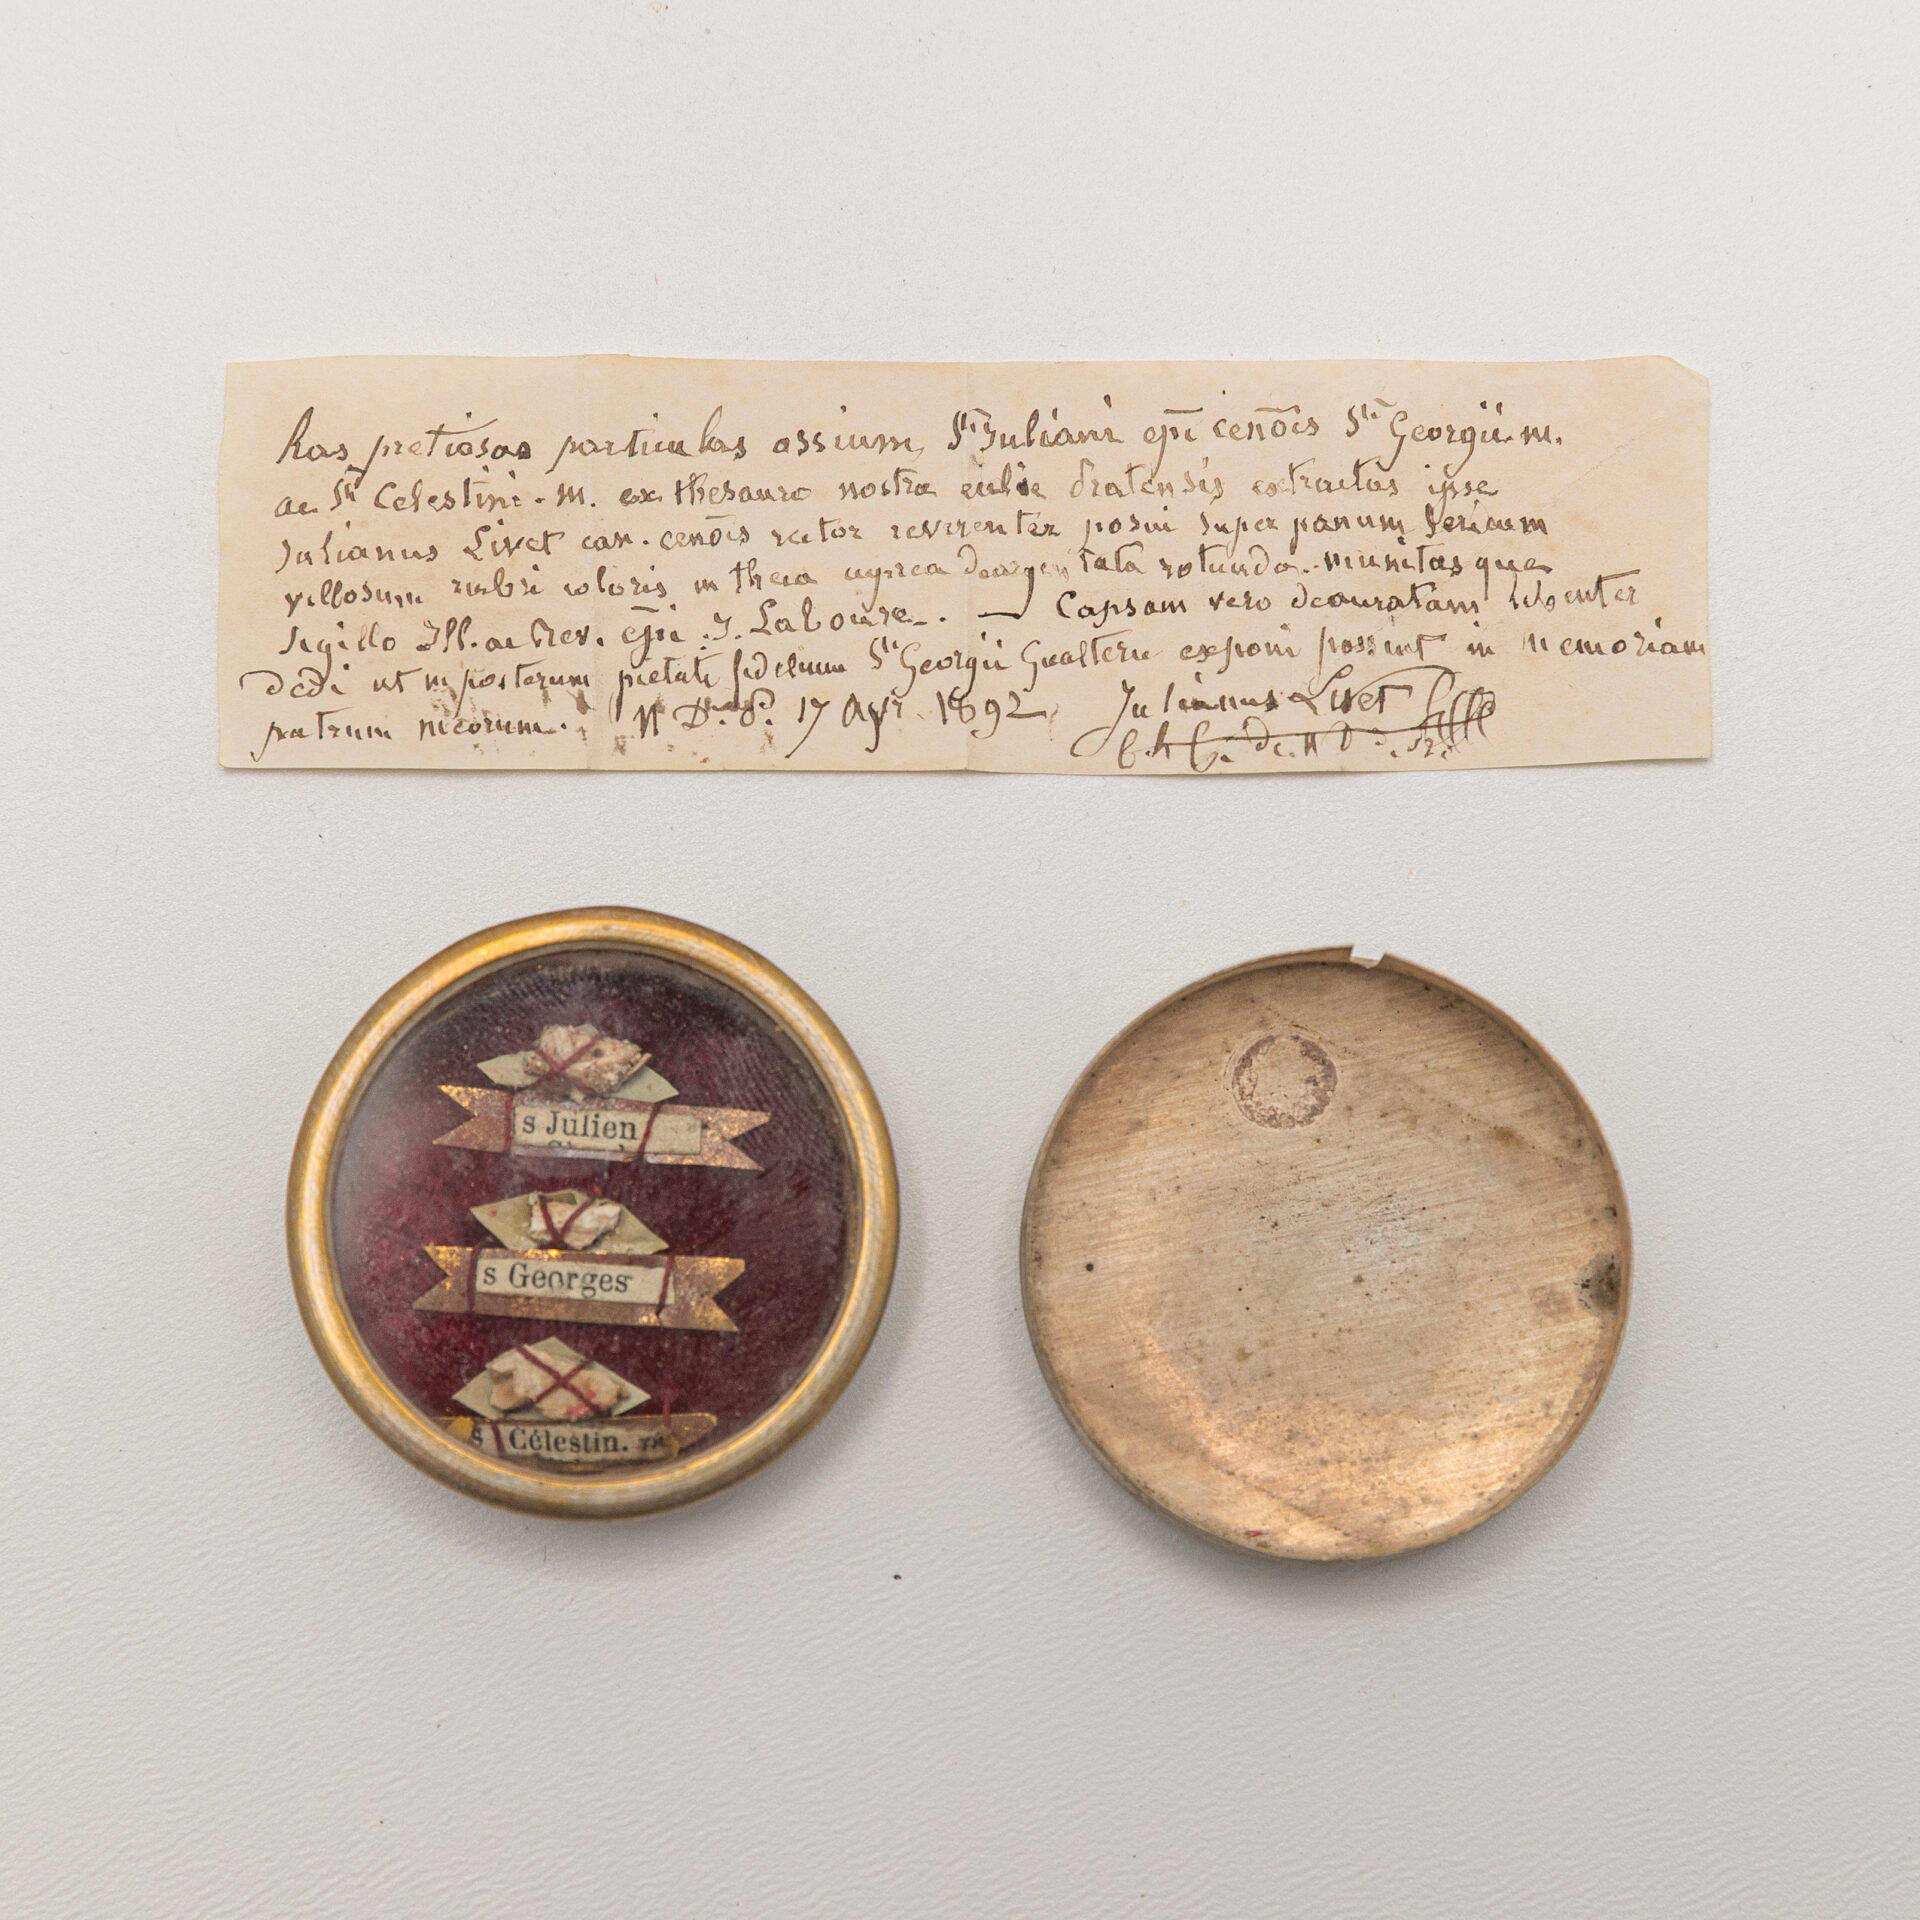 has pretiosas particulas ossium, Sti Juliani epi cenois Sti Georgii. m.
ac Sti Celestini. m. ex thesauro nostro extractas ipse
Julianus Livet can. cenois rector reverenter posui super panum sericum
villosum rubri coloris in theca deargentata rotunda. munitasque
sigillo Ill. ac Rev. epi. J. Laboure. — Capsam vero deauratam libenter
dedi ut in posterum pietati fidelium Sti Georgii Gualterii exponi possint in memoriam
patrum meorum. N D. d. 17 Apr. 1892 Julianus Livet
s Julien
s Georges
s Célestin. m